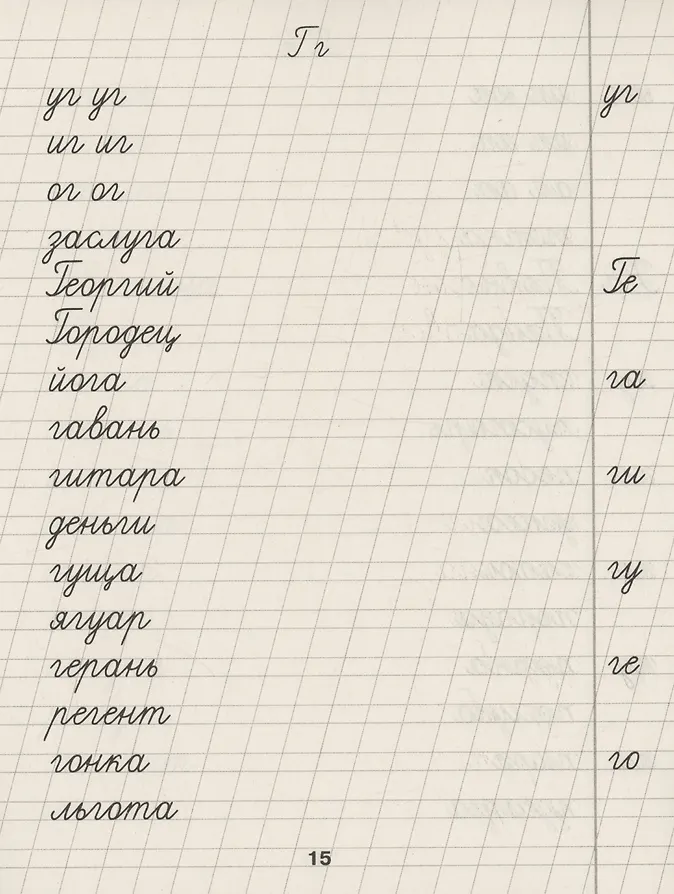 Г г
уг уг уг
иг иг
ог ог
заслуга
Георгий Ге
Городец
йога га
гавань
гитара ги
деньги
гуща гу
ягуар
герань ге
регент
гонка го
льгота
15